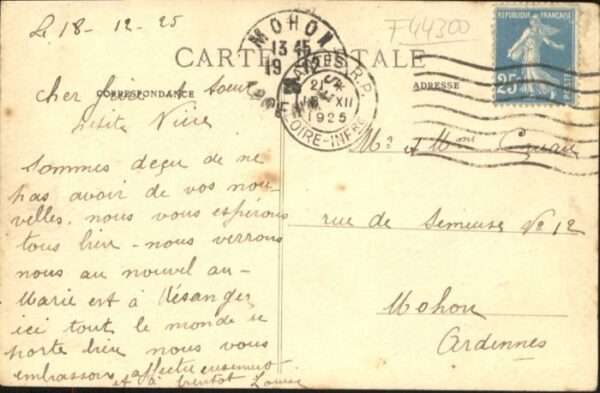 Le 18-12-25
F44300
CARTE POSTALE
CORRESPONDANCE
ADRESSE
RÉPUBLIQUE FRANÇAISE
25
MOHON
13 45
19 12
25
ARDENNES
NANTES R.P.
21
18 XII
1925
LOIRE-INFRE
cher frère et Sœur
petite Nièce
Sommes déçu de ne
pas avoir de vos nou-
velles. nous vous espérons
tous bien - nous verrons
nous au nouvel an -
Marie est à Mésanger
ici tout le monde se
porte bien nous vous
embrassons affectueusement
et à bientôt Louise
Mr et Mme
rue de Semeuse No 12
Mohon
Ardennes